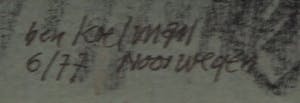 ben Koelman
6/77 Noorwegen